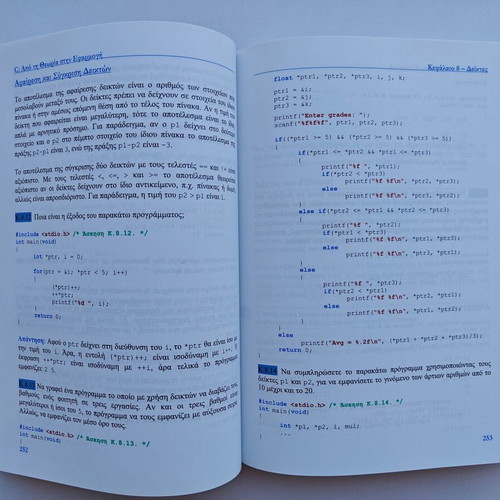 C: Από τη Θεωρία στην Εφαρμογή
Αφαίρεση και Σύγκριση Δεικτών
Το αποτέλεσμα της αφαίρεσης δεικτών είναι ο αριθμός των στοιχείων που
μεσολαβούν μεταξύ τους. Οι δείκτες πρέπει να δείχνουν σε στοιχεία του ίδιου
πίνακα ή στην αμέσως επόμενη θέση από το τέλος του πίνακα. Αν η τιμή του
δείκτη που αφαιρείται είναι μεγαλύτερη, τότε το αποτέλεσμα είναι το
απλά με αρνητικό πρόσημο. Για παράδειγμα, αν ο p1 δείχνει στο δεύτερο
στοιχείο και ο p2 στο πέμπτο στοιχείο του ίδιου πίνακα το αποτέλεσμα της
πράξης p2-p1 είναι 3, ενώ της πράξης p1-p2 είναι -3.
Το αποτέλεσμα της σύγκρισης δύο δεικτών με τους τελεστές == και != είναι
αξιόπιστο. Με τους τελεστές <, <=, > και >= το αποτέλεσμα θεωρείται
αξιόπιστο αν οι δείκτες δείχνουν στο ίδιο αντικείμενο, π.χ. πίνακας ή δομή,
αλλιώς είναι απροσδιόριστο. Για παράδειγμα, η τιμή του p2 > p1 είναι 1.
Κ.8.12 Ποια είναι η έξοδος του παρακάτω προγράμματος;
#include <stdio.h> /* Άσκηση Κ.8.12. */
int main(void)
{
int *ptr, i = 0;
for(ptr = &i; *ptr < 5; i++)
{
(*ptr)++;
++*ptr;
printf("%d ", i);
}
return 0;
}
Απάντηση: Αφού ο ptr δείχνει στη διεύθυνση του i, το *ptr θα είναι ίσο με
την τιμή του i. Άρα, η εντολή (*ptr)++; είναι ισοδύναμη με i++. Η
έκφραση ++*ptr; είναι ισοδύναμη με ++i, άρα τελικά το πρόγραμμα
εμφανίζει 2 5.
Κ.8.13 Να γραφεί ένα πρόγραμμα το οποίο με χρήση δεικτών να διαβάζει τους
βαθμούς ενός φοιτητή σε τρεις εργασίες. Αν και οι τρεις βαθμοί είναι
μεγαλύτεροι ή ίσοι του 5, το πρόγραμμα να τους εμφανίζει με αύξουσα σειρά.
Αλλιώς, να εμφανίζει τον μέσο όρο τους.
#include <stdio.h> /* Άσκηση Κ.8.13. */
int main(void)
{
252
Κεφάλαιο 8 – Δείκτες
float *ptr1, *ptr2, *ptr3, i, j, k;
ptr1 = &i;
ptr2 = &j;
ptr3 = &k;
printf("Enter grades: ");
scanf("%f%f%f", ptr1, ptr2, ptr3);
if((*ptr1 >= 5) && (*ptr2 >= 5) && (*ptr3 >= 5))
{
if(*ptr1 <= *ptr2 && *ptr1 <= *ptr3)
{
printf("%f ", *ptr1);
if(*ptr2 < *ptr3)
printf("%f %f\n", *ptr2, *ptr3);
else
printf("%f %f\n", *ptr3, *ptr2);
}
else if(*ptr2 <= *ptr1 && *ptr2 <= *ptr3)
{
printf("%f ", *ptr2);
if(*ptr1 < *ptr3)
printf("%f %f\n", *ptr1, *ptr3);
else
printf("%f %f\n", *ptr3, *ptr1);
}
else
{
printf("%f ", *ptr3);
if(*ptr2 < *ptr1)
printf("%f %f\n", *ptr2, *ptr1);
else
printf("%f %f\n", *ptr1, *ptr2);
}
}
else
printf("Avg = %.2f\n", (*ptr1 + *ptr2 + *ptr3)/3);
return 0;
}
Κ.8.14 Να συμπληρώσετε το παρακάτω πρόγραμμα χρησιμοποιώντας τους
δείκτες p1 και p2, για να εμφανίσετε το γινόμενο των άρτιων αριθμών από το
10 μέχρι και το 20.
#include <stdio.h> /* Άσκηση Κ.8.14. */
int main(void)
{
int *p1, *p2, i, mul;
...
253